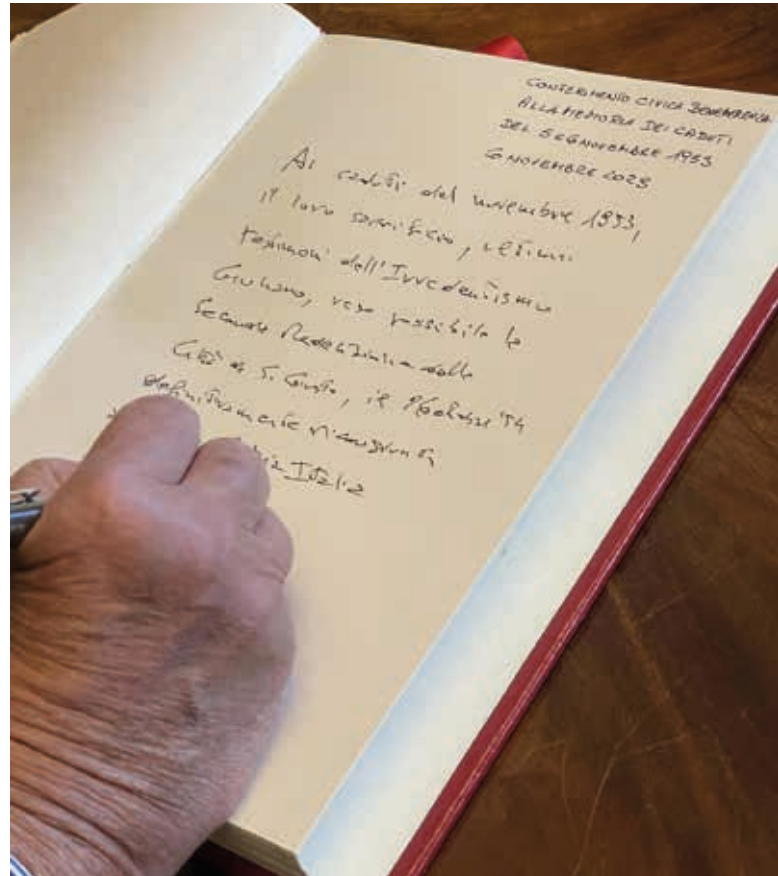 CONFERIMENTO CIVICA BENEMERENZA
ALLA MEMORIA DEI CADUTI
DEL 5 E 6 NOVEMBRE 1953
6 NOVEMBRE 2023
Ai caduti del novembre 1953,
il loro sacrificio, ultimi
testimoni dell'Irredentismo
Giuliano, rese possibile la
seconda Redenzione della
Città di S. Giusto, il
definitivamente
Italia